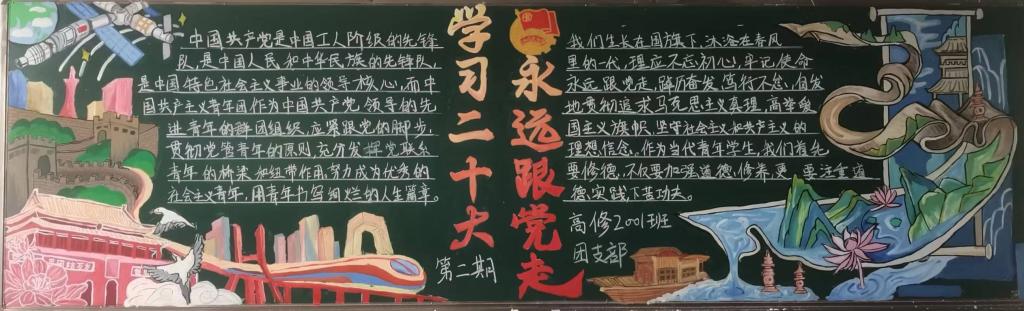 中国共产党是中国工人阶级的先锋
队,是中国人民和中华民族的先锋队,
是中国特色社会主义事业的领导核心,而中
国共产主义青年团作为中国共产党领导的先
进青年的群团组织,应紧跟党的脚步,
贯彻党管青年的原则,充分发挥党联系
青年的桥梁和纽带作用,努力成为优秀的
社会主义青年,用青年书写绚烂的人生篇章。
学习二十大
第二期
永远跟党走
我们生长在国旗下,沐浴在春风
里的一代,理应不忘初心,牢记使命
永远跟党走,踔厉奋发,笃行不怠,自发
地贯彻追求马克思主义真理,高举爱
国主义旗帜,坚守社会主义和共产主义的
理想信念,作为当代青年学生,我们首先
要修德,不仅要加强道德修养,更要注重道
德实践下苦功夫。
高修2001班
团支部